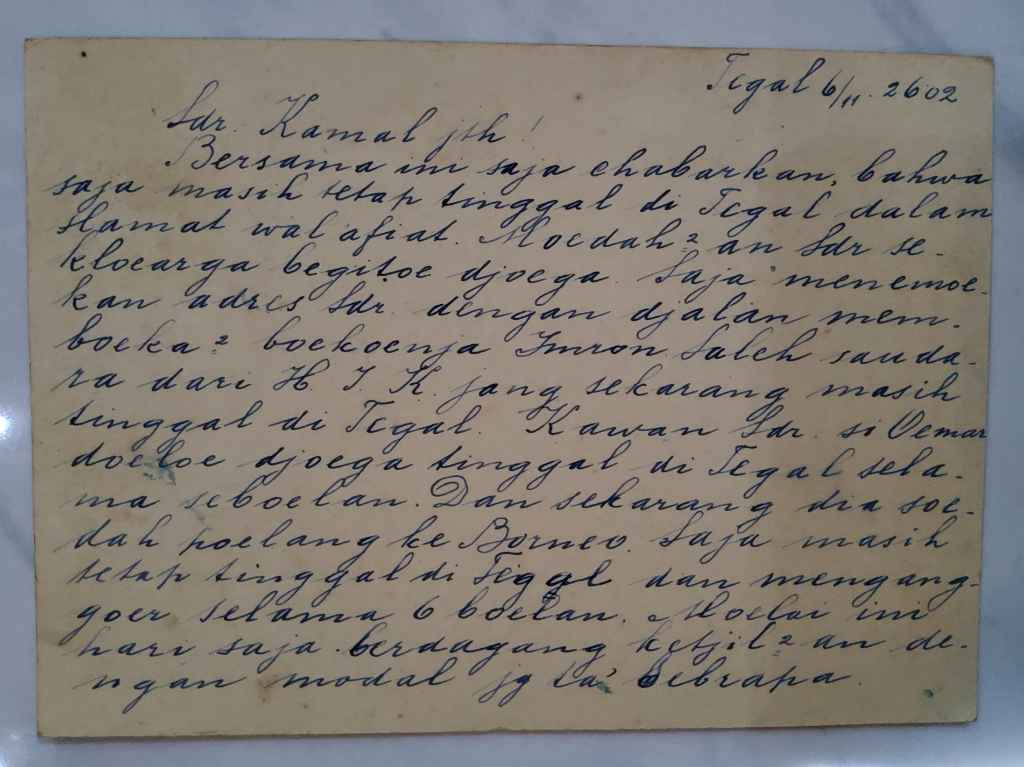 Tegal 6/11. 2602
Sdr. Kamal jth!
Bersama ini saja chabarkan, bahwa
saja masih tetap tinggal di Tegal dalam
slamat wal afiat. Moedah²an Sdr se-
kloearga begitoe djoega. Saja menemoe-
kan adres Sdr. dengan djalan mem-
boeka² boekoenja Imron Saleh sauda-
ra dari H. I. K. jang sekarang masih
tinggal di Tegal. Kawan Sdr. si Oemar
doeloe djoega tinggal di Tegal sela-
ma seboelan. Dan sekarang dia soe-
dah poelang ke Borneo. Saja masih
tetap tinggal di Tegal dan mengang-
goer selama 6 boelan. Moelai ini
hari saja berdagang ketjil²an de-
ngan modal jg ta' bebrapa.